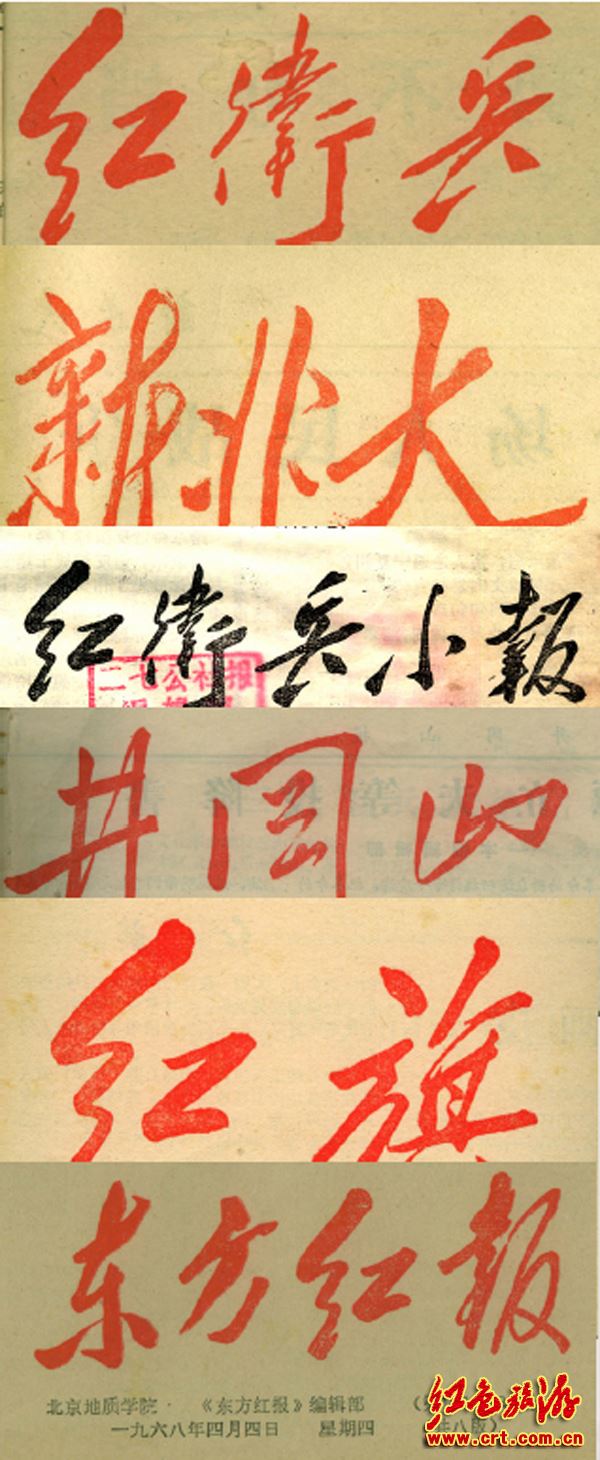 红衛兵
新北大
红衛兵小報
二七公社报
井冈山
红旗
东方红報
北京地质学院· 《东方红报》编辑部
一九六八年四月四日 星期四
版八版)
红色旅游
www.crt.com.cn